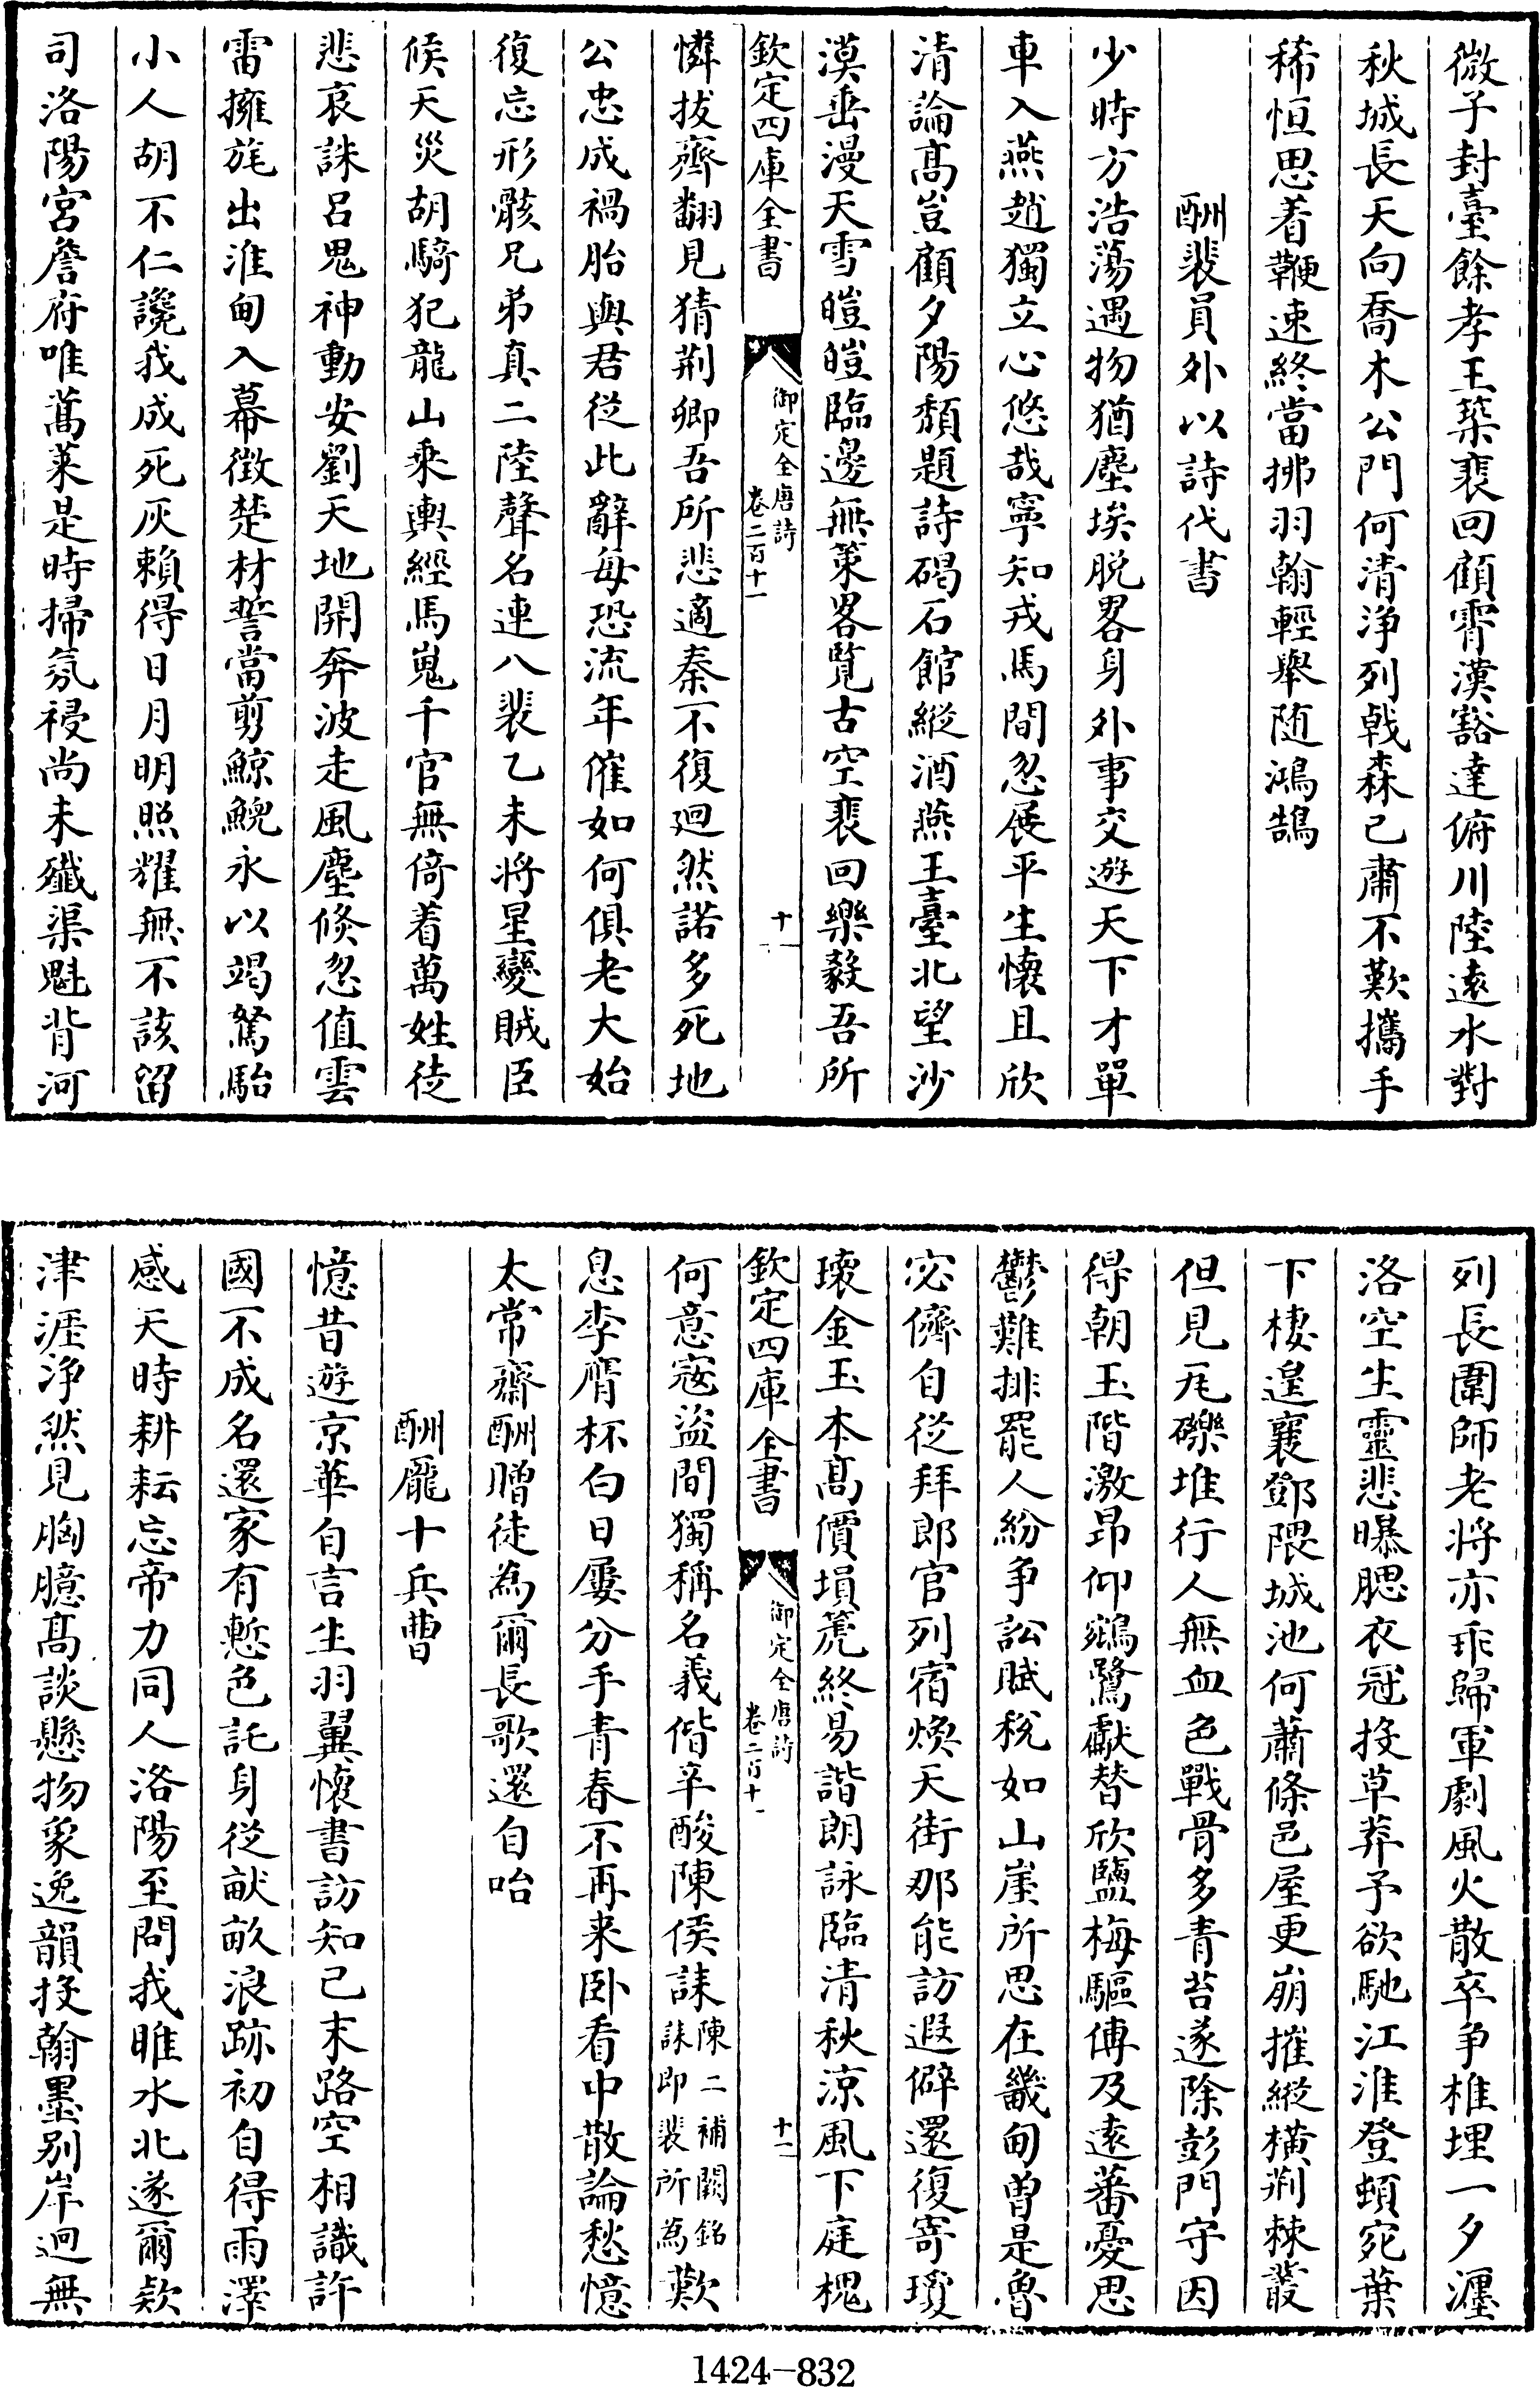 微子封臺餘孝王築裴回顧霄漢豁達俯川陸遠水對
秋城長天向喬木公門何清浄列戟森已肅不歎攜手
稀恒思着鞭速終當拂羽翰輕舉随鴻鵠
酬裴員外以詩代書
少時方浩蕩遇物猶塵埃脱畧身外事交遊天下才單
車入燕趙獨立心悠哉寧知戎馬間忽展平生懷且欣
清論髙豈顧夕陽頹題詩碣石館縱酒燕王臺北望沙
漠垂漫天雪皚皚臨邊無策畧覽古空裴回樂毅吾所
欽定四庫全書
御定全唐詩
卷二百十一
十一
憐拔齊翻見猜荆卿吾所悲適秦不復迴然諾多死地
公忠成禍胎與君從此辭每恐流年催如何俱老大始
復忘形骸兄弟真二陸聲名連八裴乙未將星變賊臣
候天災胡騎犯龍山乘輿經馬嵬千官無倚着萬姓徒
悲哀誅呂鬼神動安劉天地開奔波走風塵倏忽值雲
雷擁旄出淮甸入幕徵楚材誓當剪鯨鯢永以竭駑駘
小人胡不仁讒我成死灰賴得日月明照耀無不該留
司洛陽宮詹府唯蒿萊是時掃氛祲尚未殲渠魁背河
列長圍師老将亦乖歸軍劇風火散卒争椎埋一夕瀍
洛空生靈悲曝腮衣冠投草莽予欲馳江淮登頓宛葉
下棲遑襄鄧隈城池何蕭條邑屋更崩摧縱橫荆棘叢
但見瓦礫堆行人無血色戰骨多青苔遂除彭門守因
得朝玉階激昂仰鵷鷺獻替欣鹽梅驅傳及遠蕃憂思
鬱難排罷人紛争訟賦稅如山崖所思在畿甸曾是魯
宓儕自從拜郎官列宿煥天街那能訪遐僻還復寄瓊
瓌金玉本髙價塤箎終易諧朗詠臨清秋涼風下庭槐
欽定四庫全書
御定全唐詩
卷二百十一
十二
何意寇盜間獨稱名義偕辛酸陳侯誄陳二補闕銘誄即裴所為歎
息李膺杯白日屢分手青春不再来卧看中散論愁憶
太常齋酬贈徒為爾長歌還自咍
酬龐十兵曹
憶昔遊京華自言生羽翼懷書訪知己末路空相識許
國不成名還家有慙色託身從畎畝浪跡初自得雨澤
感天時耕耘忘帝力同人洛陽至問我睢水北遂爾欵
津涯浄然見胸臆髙談懸物象逸韻投翰墨别岸迥無
1424-832